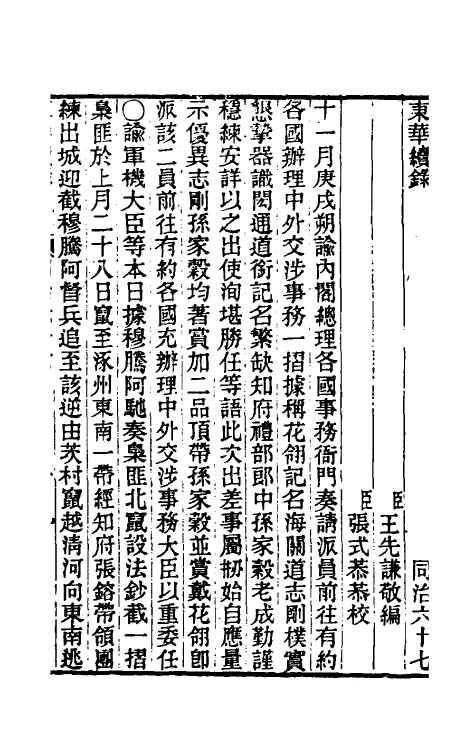 東華續錄　同治六十七
臣王先謙敬編
臣張式恭恭校
十一月庚戌朔諭內閣總理各國事務衙門奏請派員前往有約
各國辦理中外交涉事務一摺據稱花翎記名海關道志剛樸實
懇摯器識閎通道銜記名繁缺知府禮部郎中孫家穀老成勤謹
穩練安詳以之出使洵堪勝任等語此次出差事屬刱始自應量
示優異志剛孫家穀均著賞加二品頂帶孫家穀並賞戴花翎卽
派該二員前往有約各國充辦理中外交涉事務大臣以重委任
○諭軍機大臣等本日據穆騰阿馳奏梟匪北竄設法鈔截一摺
梟匪於上月二十八日竄至涿州東南一帶經知府張鎔帶領團
練出城迎截穆騰阿督兵追至該逆由茨村竄越清河向東南逃